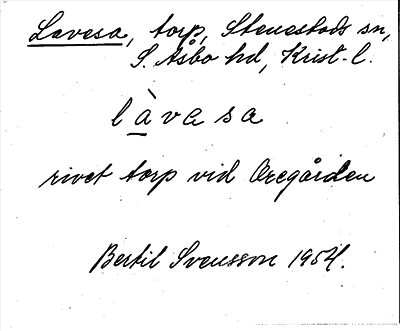 Lavesa, torp, Stenestads sn,
S. Åsbo hd, Krist. l.
làvasa
rivet torp vid Oregården
Bertil Svensson 1954.